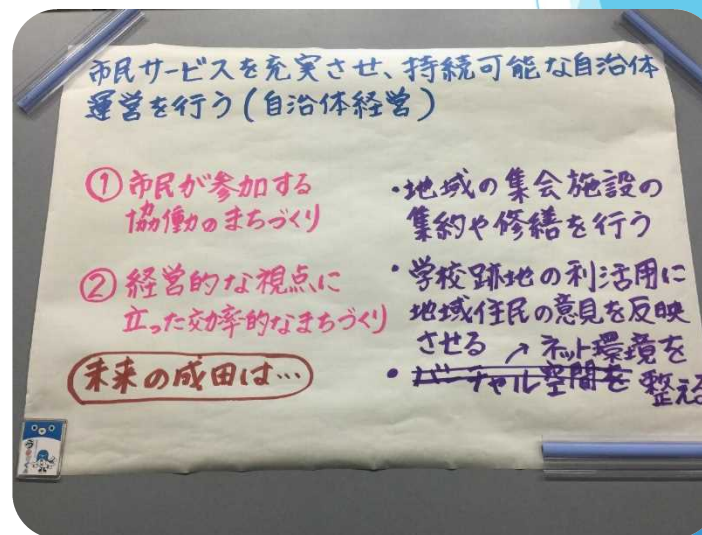 市民サービスを充実させ、持続可能な自治体
運営を行う(自治体経営)
①市民が参加する
協働のまちづくり
②経営的な視点に
立った効率的なまちづくり
未来の成田は…
・地域の集会施設の
集約や修繕を行う
・学校跡地の利活用に
地域住民の意見を反映
させる ↗ネット環境を
・バーチャル空間を 整える